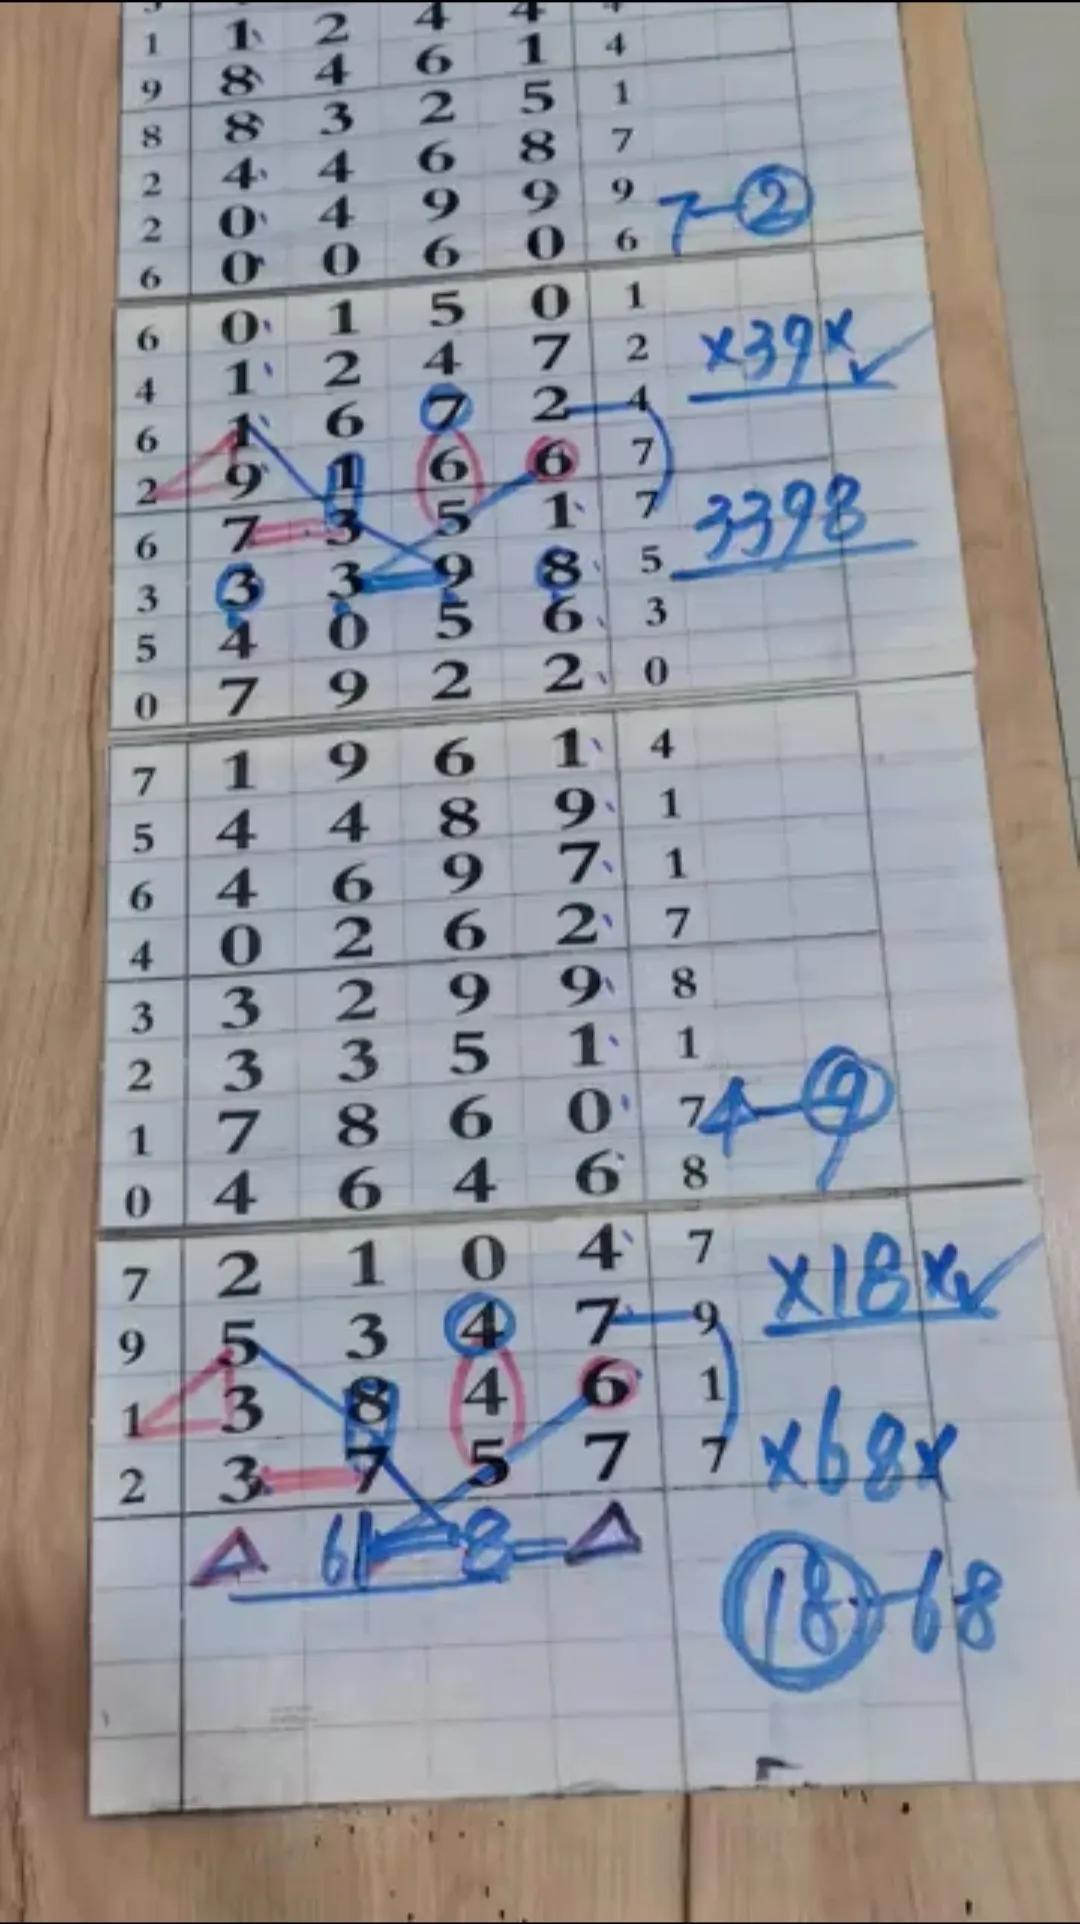 1 1 2 4 4
9 8 4 6 1 4
8 8 3 2 5 1
2 4 4 6 8 7
2 0 4 9 9 9 7-2
6 0 0 6 0 6
6 0 1 5 0 1
4 1 2 4 7 2 x39x ✓
6 1 6 7 2 4
2 9 1 6 6 7
6 7 3 5 1 7 3398
3 3 3 9 8 5
5 4 0 5 6 3
0 7 9 2 2 0
7 1 9 6 1 4
5 4 4 8 9 1
6 4 6 9 7 1
4 0 2 6 2 7
3 3 2 9 9 8
2 3 3 5 1 1
1 7 8 6 0 7 4-9
0 4 6 4 6 8
7 2 1 0 4 7 x18x ✓
9 5 3 4 7 9
1 3 8 4 6 1
2 3 7 5 7 7 x68x
△ 61 8 = △
18-68